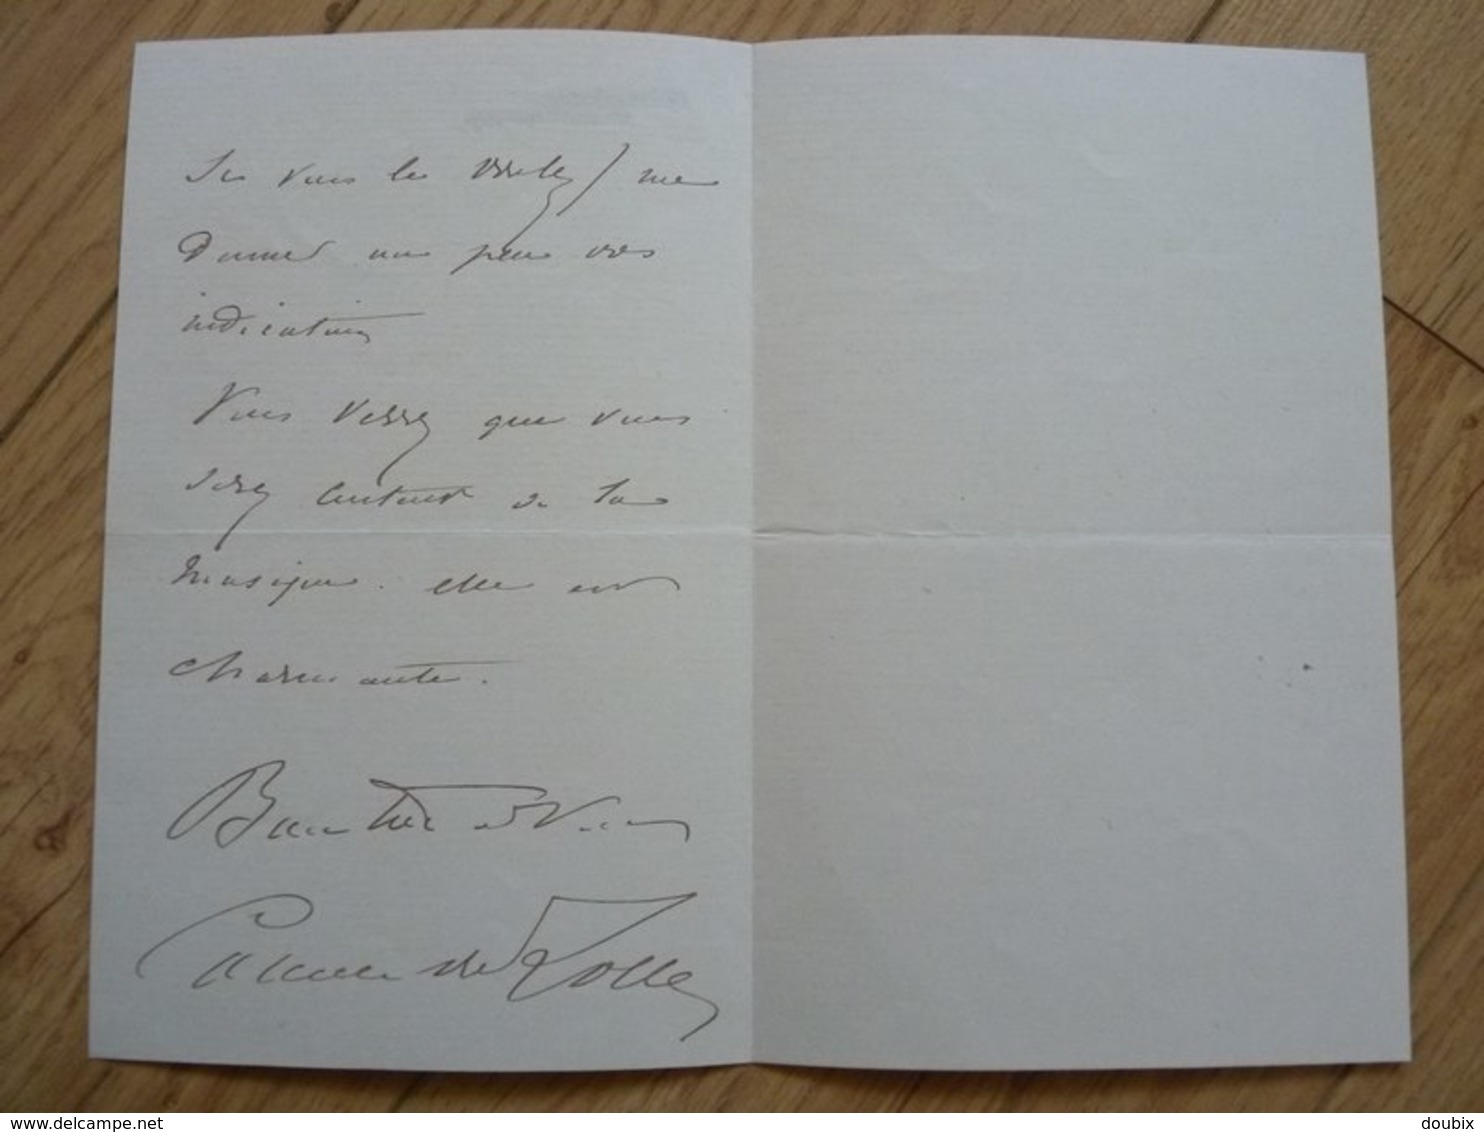 Si vous le voulez) me
donner un peu vos
indications
Vous verrez que vous
serez content de la
musique. elle est
charmante.
Bien à Vous
Camille de
delcampe.net
doubix